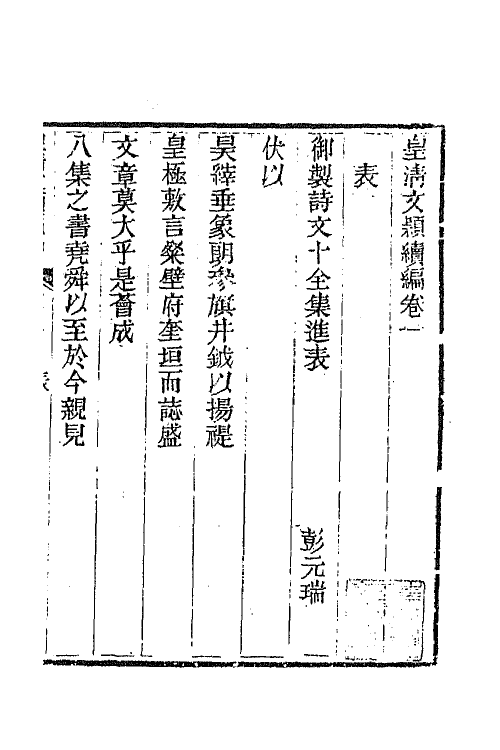 皇淸文穎續編卷一
表
御製詩文十全集進表
彭元瑞
伏以
昊縡垂象朗參旗井鉞以揚禔
皇極敷言燦壁府奎垣而誌盛
文章莫大乎是薈成
八集之書堯舜以至於今親見
表